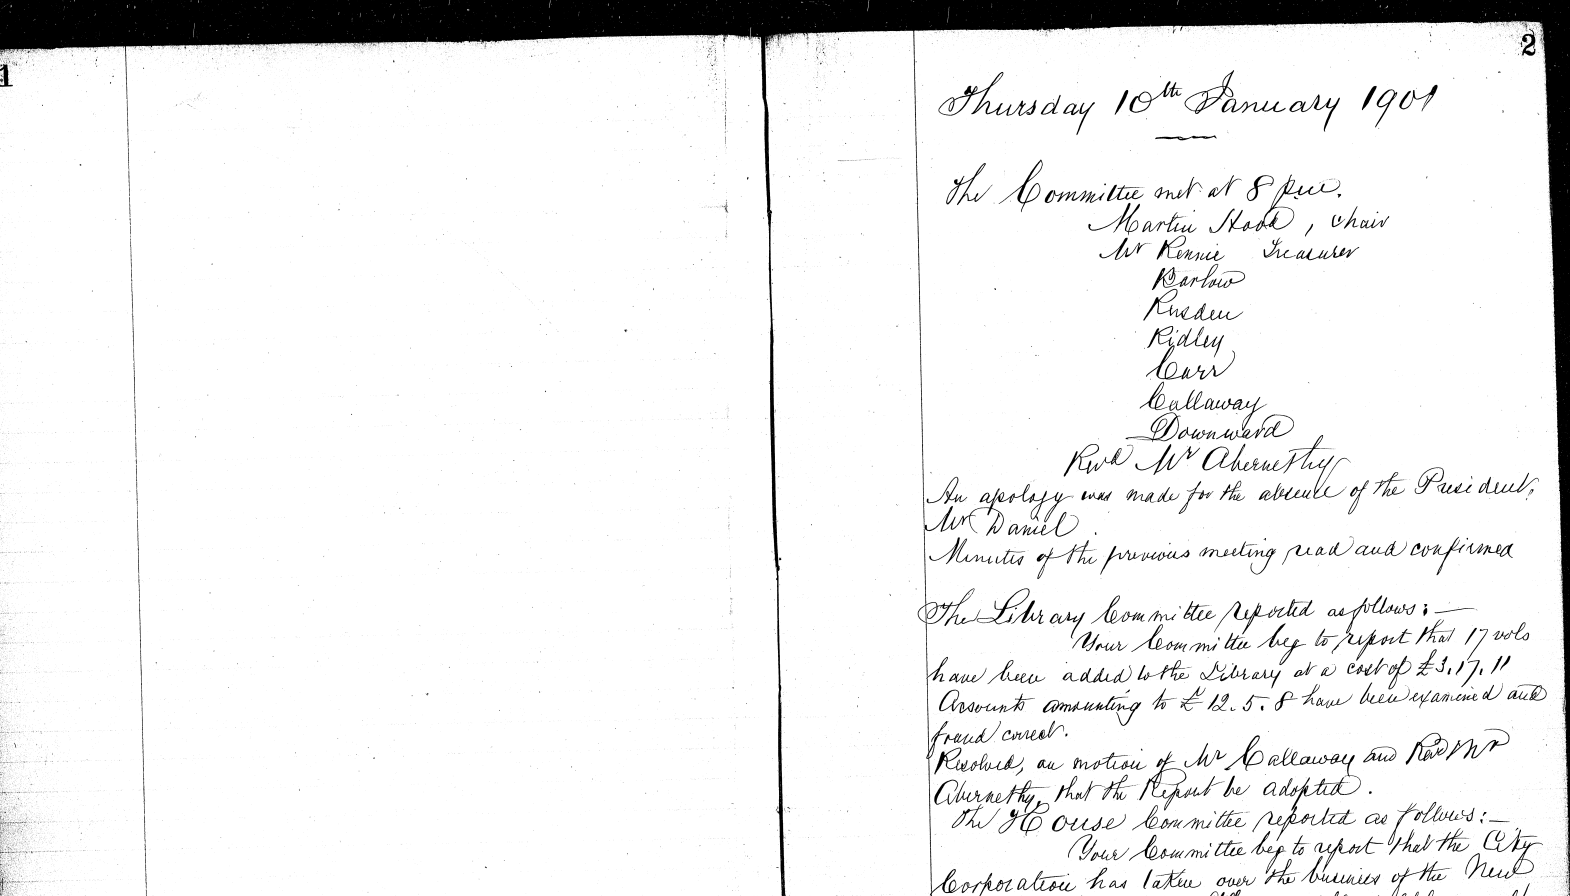 1
2
Thursday 10th January 1901
The Committee met at 8 p.m.
Martin Hood, chair
Mr Rennie Treasurer
Barlow
Rusden
Ridley
Carr
Callaway
Downward
Revd Mr Abernethy
An apology was made for the absence of the President,
Mr Daniel.
Minutes of the previous meeting read and confirmed
The Library Committee reported as follows:—
Your Committee beg to report that 17 vols
have been added to the Library at a cost of £3.17.11
Accounts amounting to £12.5.8 have been examined and
found correct.
Resolved, on motion of Mr Callaway and Revd Mr
Abernethy, that the Report be adopted.
The House Committee reported as follows:—
Your Committee beg to report that the City
Corporation has taken over the business of the New